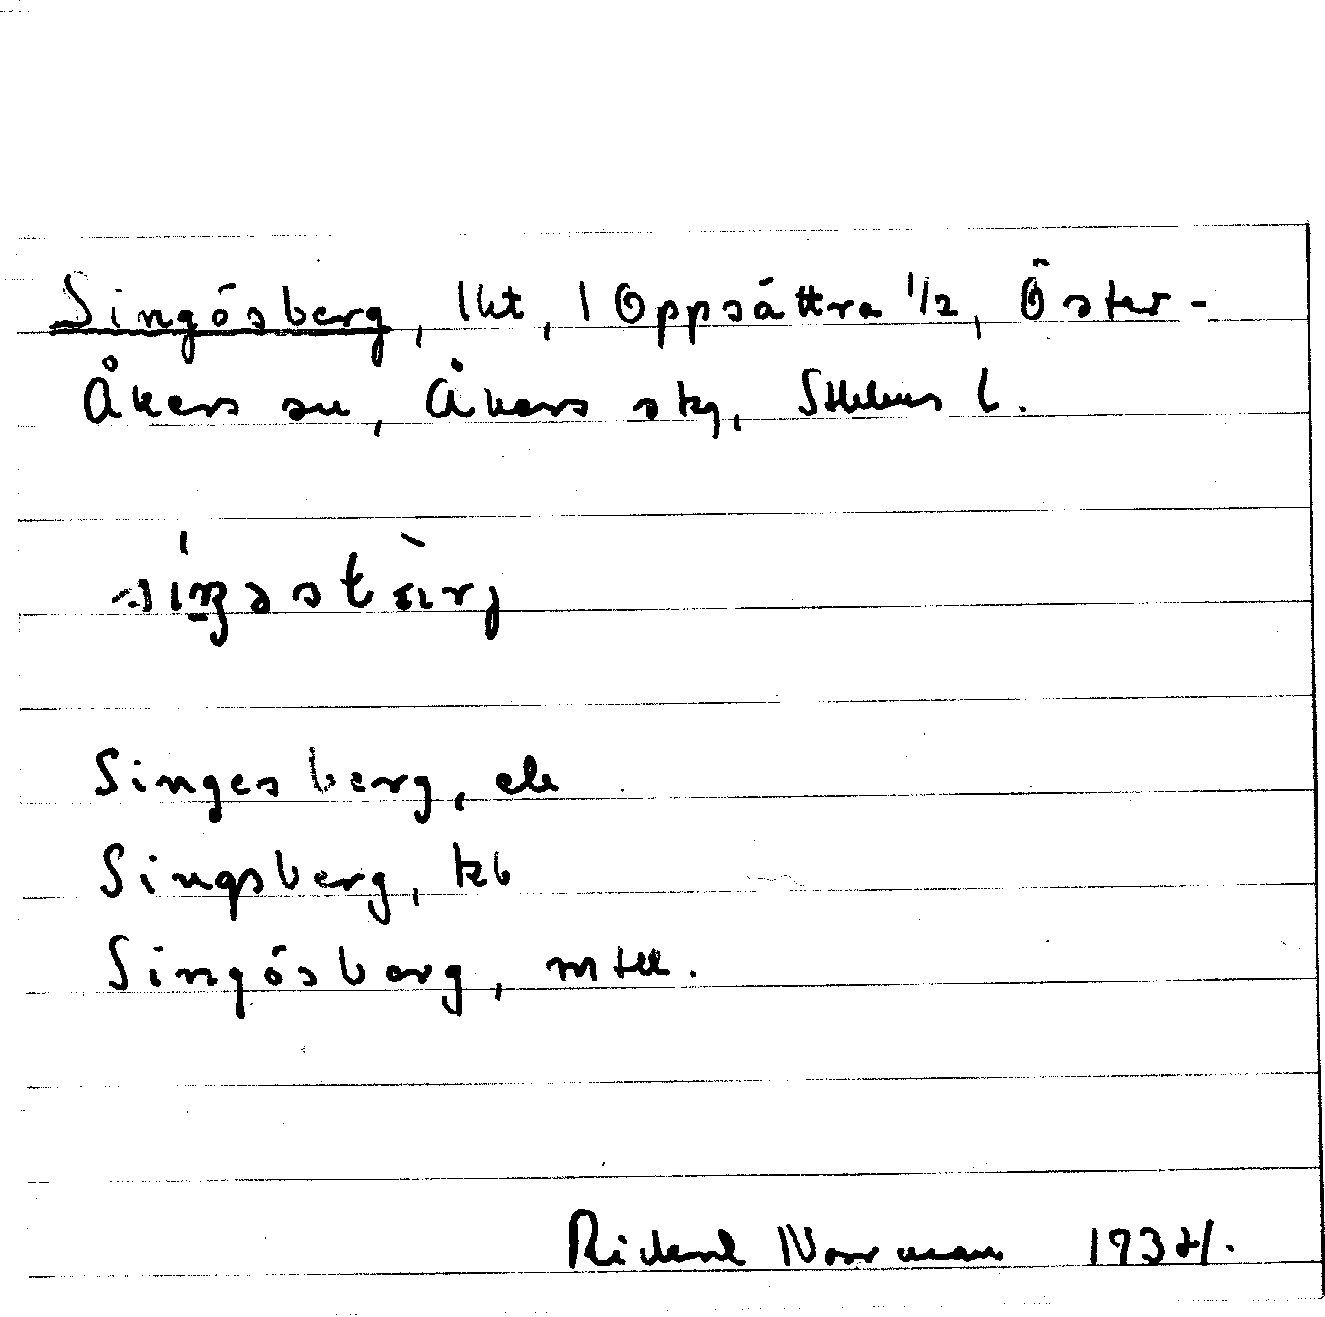 Singösberg, lht, 1 Oppsättra 1/2, Öster-
Åkers sn, Åkers skg, Sthlms l.
Singesberg, ek
Singsberg, kb
Singösberg, mtll.
Rickard Norrman 1934.